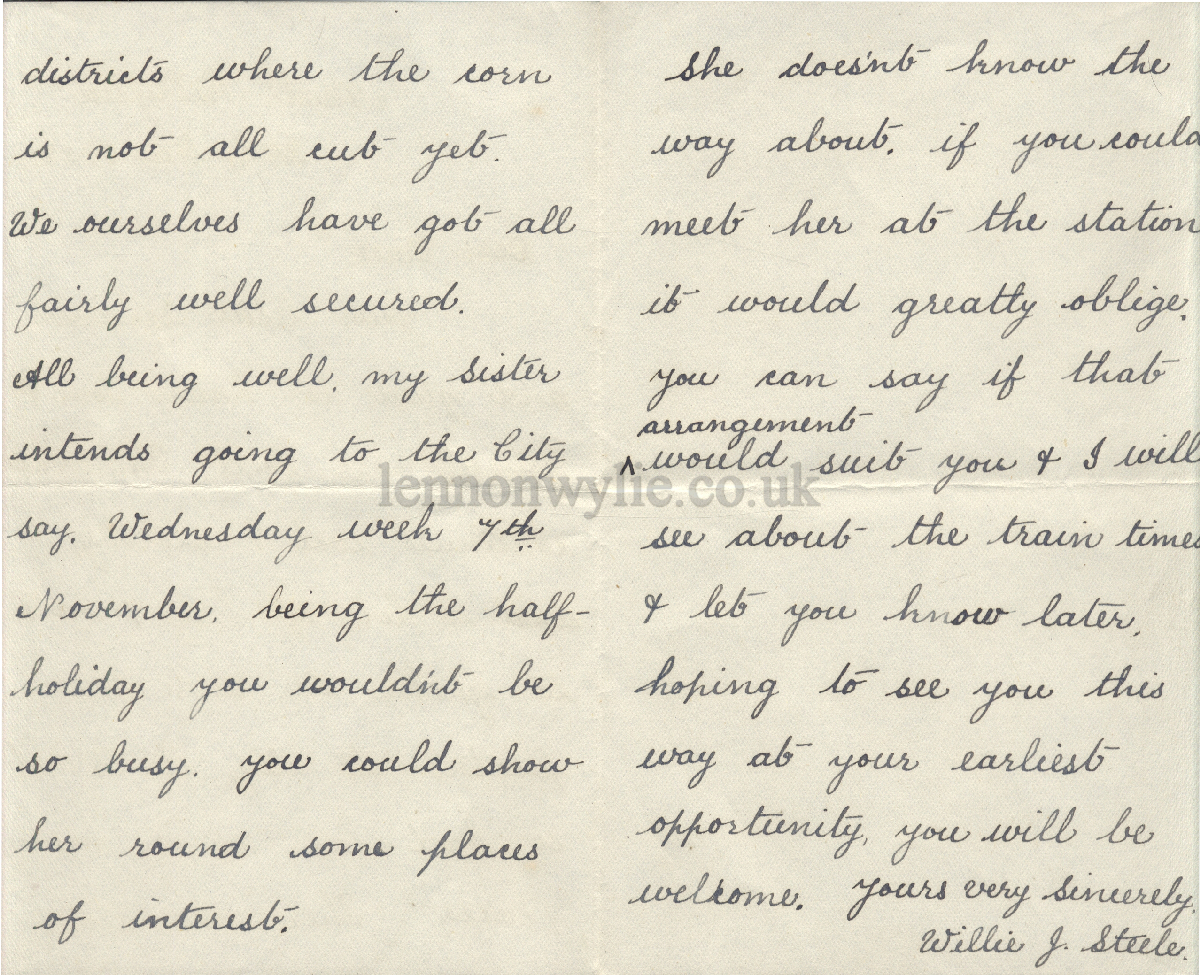 districts where the corn
is not all cut yet.
We ourselves have got all
fairly well secured.
All being well, my sister
intends going to the City
say, Wednesday week 7th
November, being the half-
holiday you wouldn't be
so busy, you could show
her round some places
of interest.
she does'nt know the
way about, if you could
meet her at the station
it would greatly oblige,
you can say if that
arrangement
^ would suit you & I will
see about the train times
& let you know later,
hoping to see you this
way at your earliest
opportunity, you will be
welcome. yours very sincerely,
Willie J. Steele.
lennonwylie.co.uk